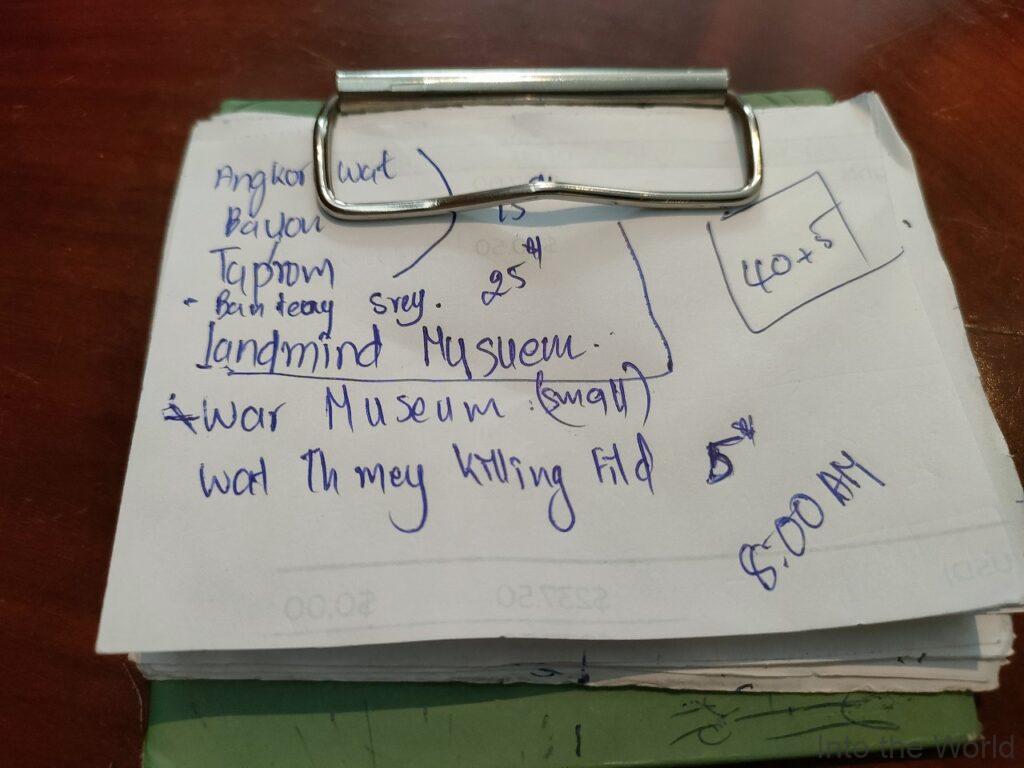 Angkor wat
Bayon 15
Taprom
25$
Banteay Srey.
landmind Mysuem.
40+5
War Museum (small)
wat Thmey killing Fild 5$
8:00 AM
$0.00 $237.50
Into the World